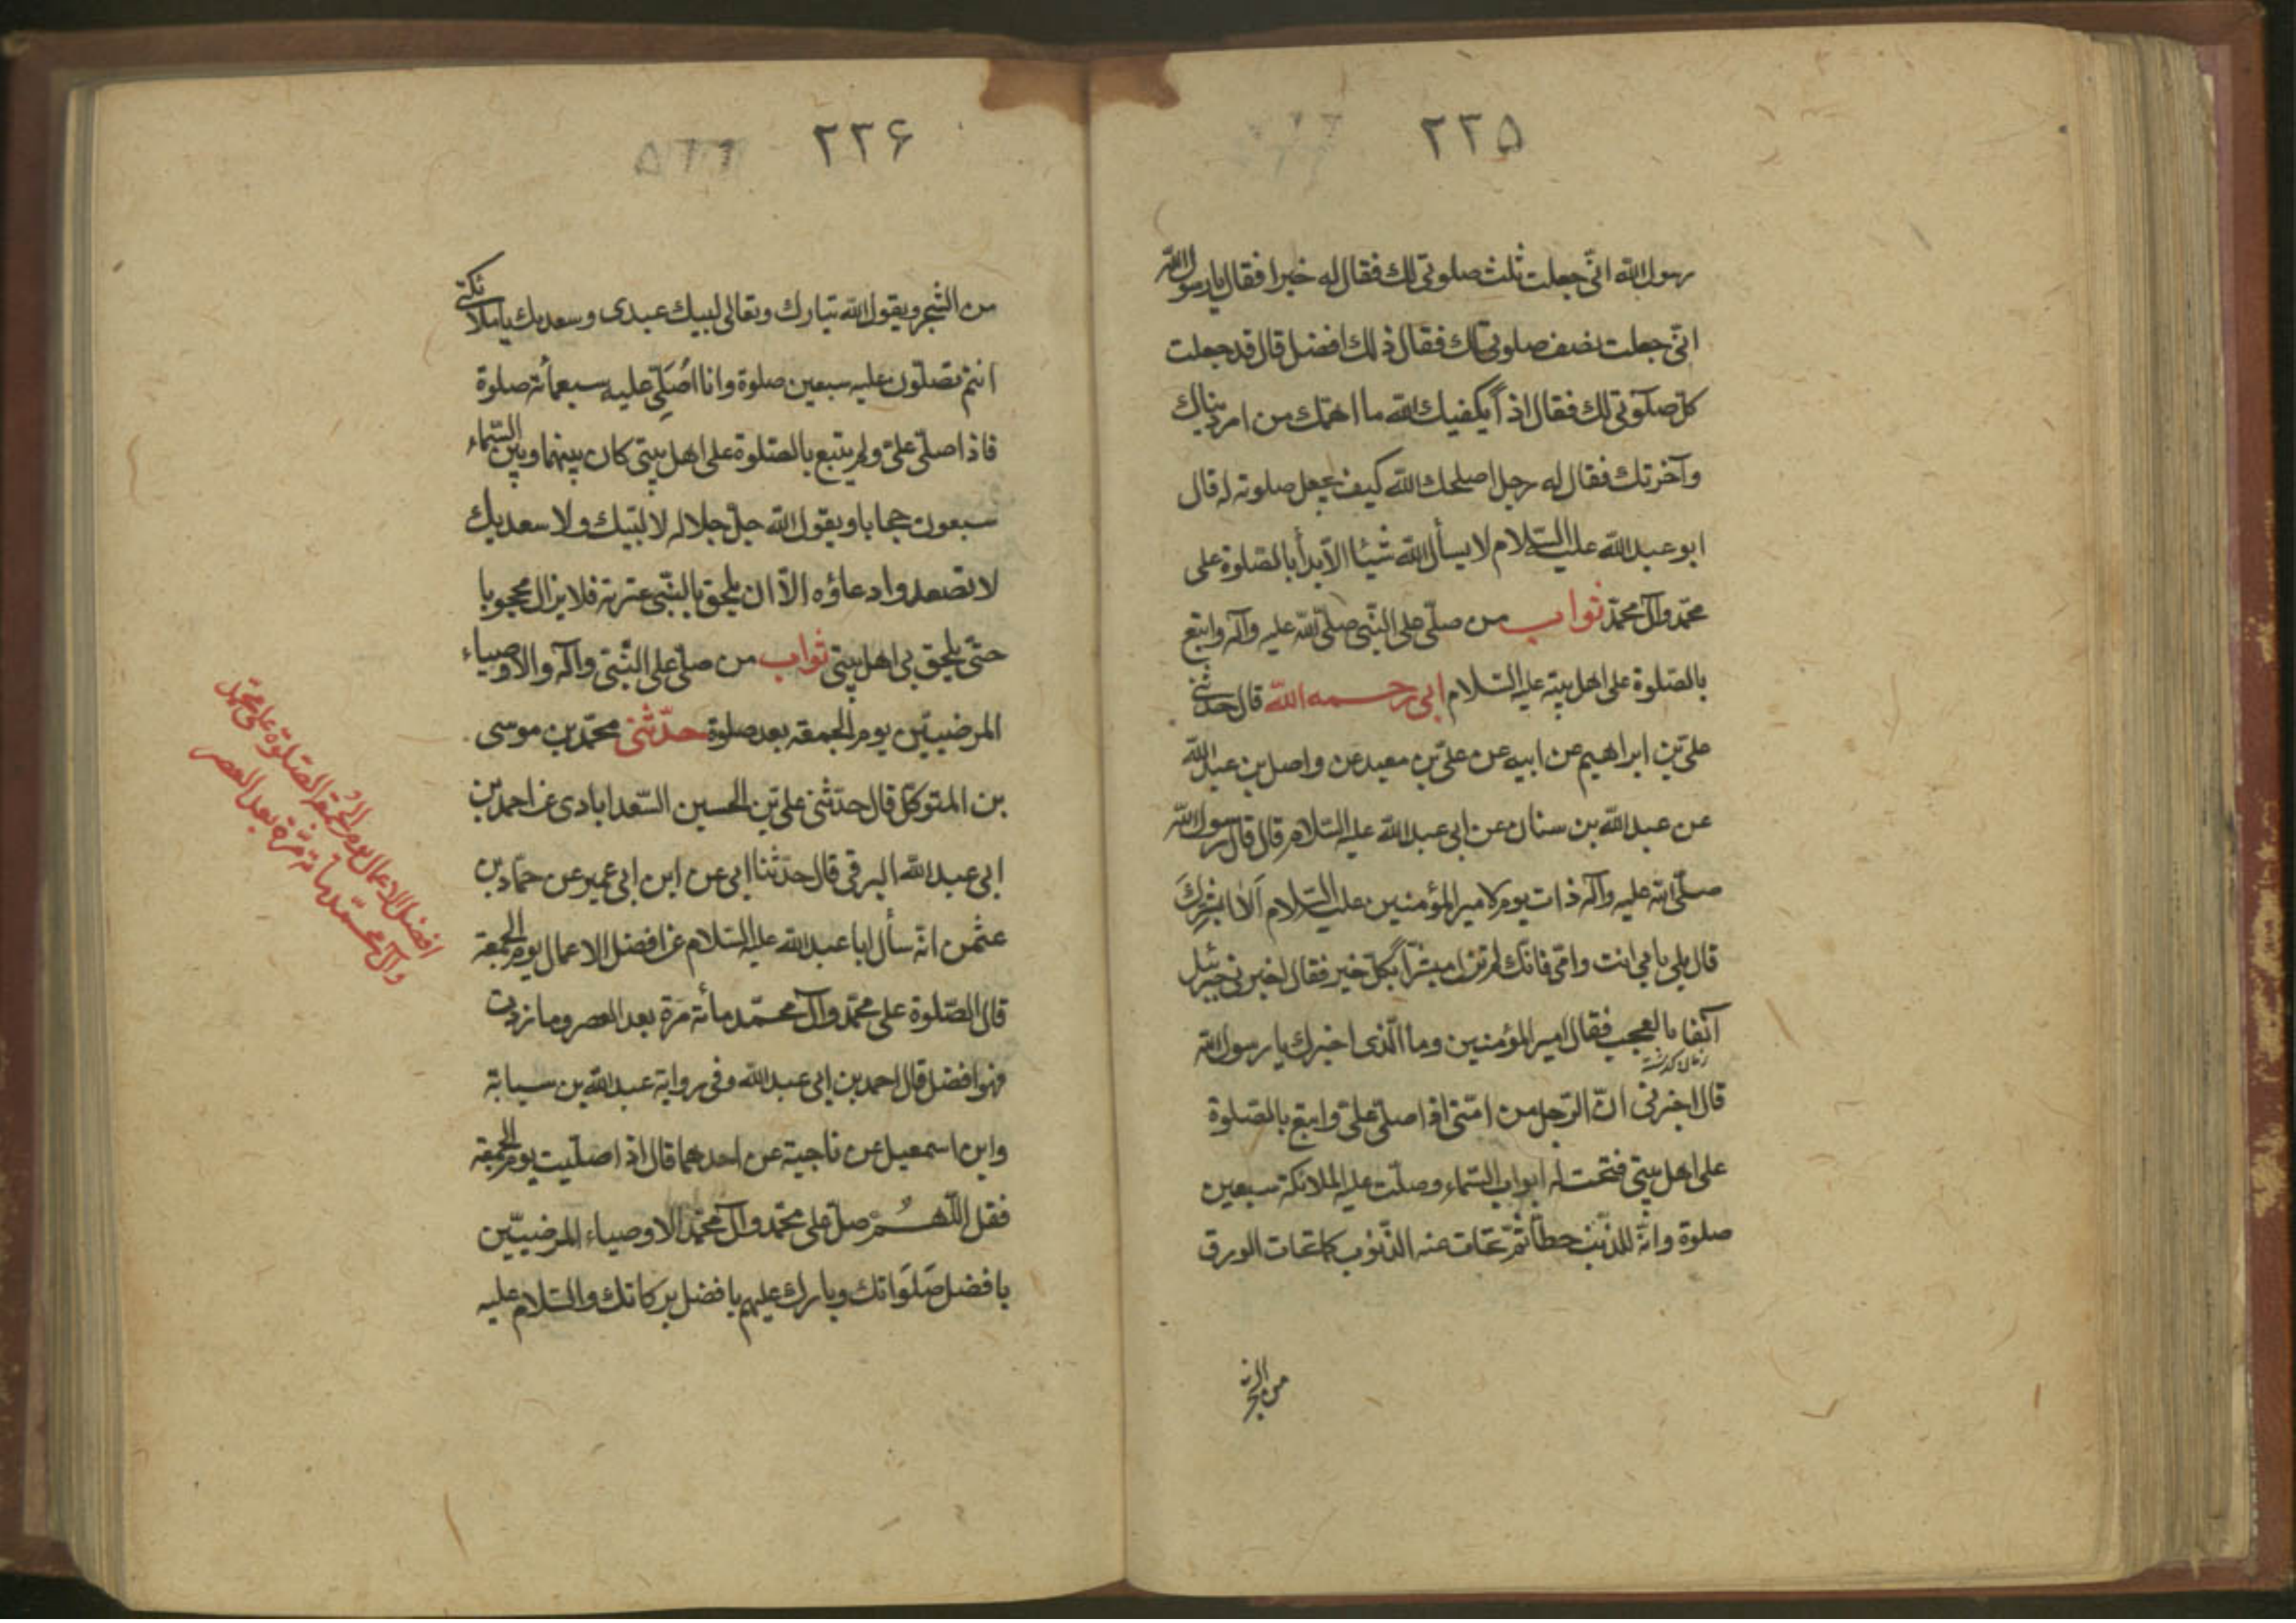 ۲۲۵
رسول الله انّى جعلت ثلث صلوتى لك فقال له خيرا فقال يا رسول الله
انّى جعلت نصف صلوتى لك فقال ذلك افضل قال قد جعلت
كلّ صلوتى لك فقال اذاً يكفيك الله ما اهمّك من امر دنياك
وآخرتك فقال له رجل اصلحك الله كيف يجعل صلوته له قال
ابو عبد الله عليه السّلام لا يسأل الله شيئا الّا بدأ بالصّلوة على
محمّد وآل محمّد ثواب من صلّى على النّبى صلّى الله عليه وآله واتبع
بالصّلوة على اهل بيته عليه السّلام ابى رحمه الله قال حدّثنى
علىّ بن ابراهيم عن ابيه عن علىّ بن معبد عن واصل بن عبد الله
عن عبد الله بن سنان عن ابى عبد الله عليه السّلام قال قال رسول الله
صلّى الله عليه وآله ذات يوم لامير المؤمنين عليه السّلام اَلا ابشّركَ
قال بلى بابى انت وامّى فانّك لم تزل مبشّراً بكلّ خير فقال اخبرنى جبرئيل
آنفا بالعجب فقال امير المؤمنين وما الّذى اخبرك يا رسول الله
زمان گذشته
قال اخبرنى انّ الرّجل من امّتى اذا صلّى علىّ واتبع بالصّلوة
على اهل بيتى فتحت له ابواب السّماء وصلّت عليه الملائكة سبعين
صلوة وانّه للذّنب حطّا ثمّ تحات عنه الذّنوب كما تحات الورق
من الشجر
۲۲۶
من الشّجر ويقول الله تبارك وتعالى لبيك عبدى وسعديك يا ملائكتى
انتم تصلّون عليه سبعين صلوة وانا اُصَلِّى عليه سبعمأته صلوة
فاذا صلّى علىّ ولم يتبع بالصّلوة على اهل بيتى كان بينهما وبين السّماء
سبعون حجابا ويقول الله جلّ جلاله لا لبّيك ولا سعديك
لا تصعدوا دعاؤه الّا ان يلحق بالنّبى عترته فلا يزال محجوبا
حتّى يلحق بى اهل بيتى ثواب من صلّى على النّبىّ وآله والاوصياء
المرضيّين يوم الجمعة بعد صلوة حدّثنى محمّد بن موسى
بن المتوكّل قال حدّثنى علىّ بن الحسين السّعدابادى عن احمد بن
ابى عبد الله البرقى قال حدّثنا ابى عن ابن ابى عمير عن حمّاد بن
عثمن انّه سأل ابا عبد الله عليه السّلام عن افضل الاعمال يوم الجمعة
قال الصّلوة على محمّد وآل محمّد مأئة مَرّة بعد العصر وما زدت
فهو افضل قال احمد بن ابى عبد الله وفى رواية عبد الله بن سيابة
وابن اسمعيل عن ناجية عن احدهما قال اذا صلّيت يوم الجمعة
فقل اللّهُمّ صلّ على محمّد وآل محمّد الاوصياء المرضيّين
بافضل صَلَوَاتك وبارك عليهم بافضل بركاتك والسّلام عليه
افضل الاعمال يوم الجُمعة الصّلوة على محمّد
وآل محمّد مأئة مَرّة بعد العصر